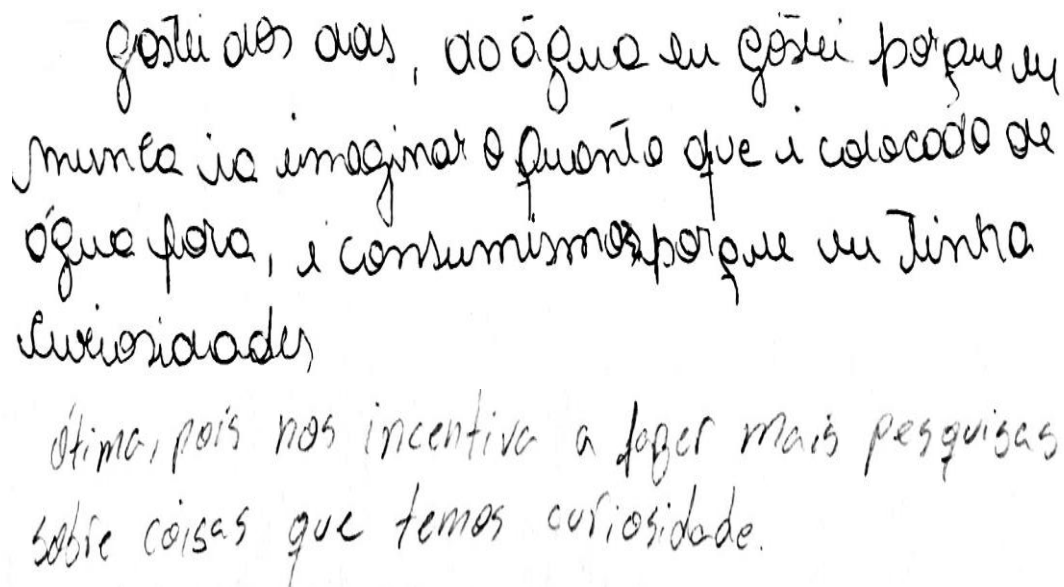 gostei dos dois, do água eu gostei porque eu
nunca ia imaginar o quanto que é colocado de
água fora, e consumismos porque eu tinha
curiosidades
ótima, pois nos incentiva a fazer mais pesquisas
sobre coisas que temos curiosidade.